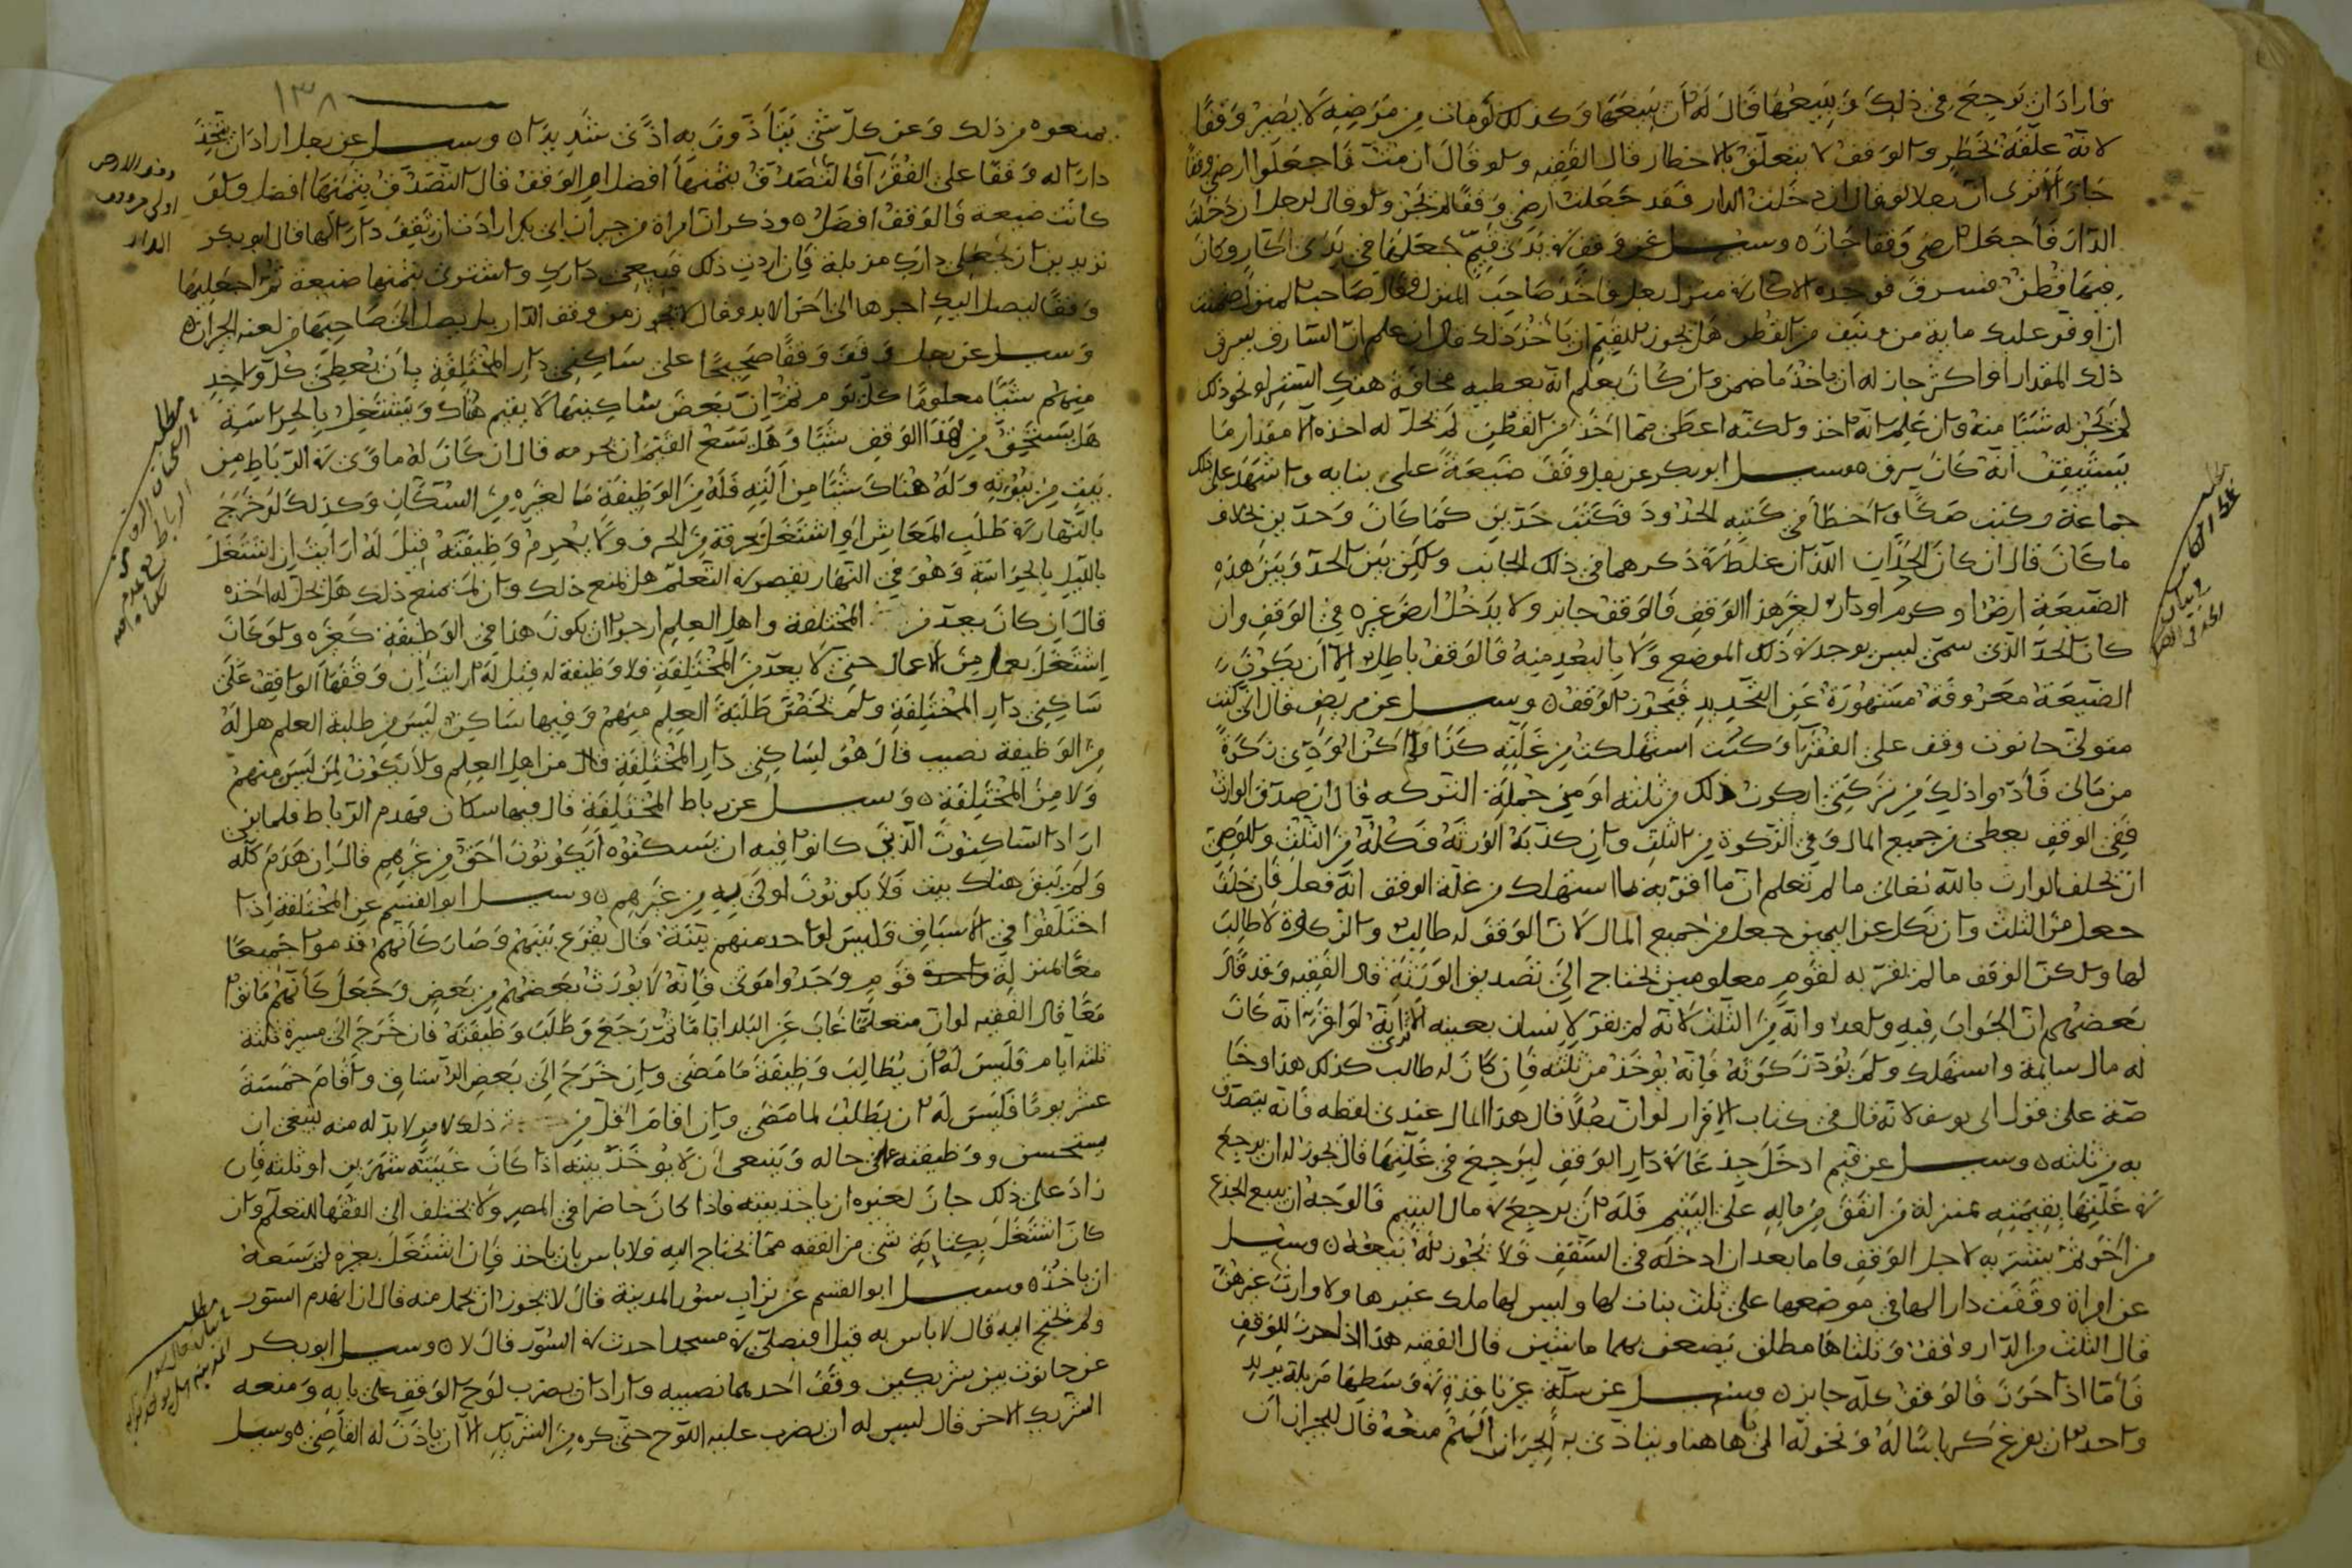 فاراد ان يرجع في ذلك ويبيعها قال له ان يبيعها وكذلك لو مات من مرضه لا يصير وقفا
لانه علقه بخطر والوقف لا يتعلق بالاخطار قال الفقيه ولو قال ان مت فاجعلوا ارضي وقفا
جاز الا ترى ان رجلا لو قال ان دخلت الدار فقد جعلت ارضي وقفا لم يجز ولو قال لرجل ان دخلت
الدار فاجعل ارضي وقفا جاز وسئل عن وقف في يدي قيم جعلها في يدي اكار وكان
فيها قطن فسرق فوجده الاكار في منزل رجل فاخذ صاحب المنزل وقال صاحب المنزل ضمنت
ان اوفر عليك مايه من ونيف من القطن هل يجوز للقيم ان ياخذ ذلك قال ان علم ان السارق سرق
ذلك المقدار او اكثر جاز له ان ياخذ ما ضمن وان كان يعلم انه يعطيه مخافة هتك الستر او نحو ذلك
لم يجز له شيئا منه وان علم انه اخذ ولكنه اعطى مما اخذ من القطن لم يحل له اخذه الا مقدار ما
يستيقن انه كان سرق وسئل ابو بكر عن رجل وقف ضيعة على بنايه واشهد على ذلك
جماعة وكتب صكا واخطا في كتبه الحدود فكتب حدين كما كان وحدين بخلاف
ما كان قال ان كان الحدان اللذان غلط في ذكرهما في ذلك الجانب ولكن بين الحد وبين هذه
الضيعة ارض او كرم او دار لغير هذا الوقف فالوقف جايز ولا يدخل ارض غيره في الوقف وان
كان الحد الذي سمى ليس يوجد في ذلك الموضع ولا بالبعد منه فالوقف باطل الا ان يكون
الضيعة معروفة مشهورة عن التحديد فيجوز الوقف وسئل عن مريض قال اني كنت
متولى حانوت وقف على الفقرا وكنت استهلكت من غلته كذا ولم اكن اودي زكوة
من مالي فادوا ذلك من تركتي ايكون ذلك من ثلثه او من جملة التركه قال ان صدق الوارث
ففي الوقف يعطى من جميع المال وفي الزكوة من الثلث وان كذبه الورثة فكله من الثلث وللوصي
ان يحلف الوارث بالله تعالى ما لم تعلم ان ما اقر به ما استهلك من غلة الوقف انه فعل فان حلف
جعل من الثلث وان نكل عن اليمين جعل من جميع المال لان الوقف له طالب والزكوة لا طالب
لها ولكن الوقف ما لم يقر به لقوم معلومين يحتاج الى تصديق الورثة قال الفقيه وقد قال
بعضهم ان الجواب فيه واحد وانه من الثلث لانه لم يقر لانسان بعينه الا ترى انه لو اقر انه كان
له مال سايمة واستهلك ولم يؤد زكوته فانه يوخذ من ثلثه فان كان له طالب كذلك هذا وخا
صة على قول ابي يوسف لانه قال في كتاب الاقرار لو ان رجلا قال هذا المال عندي لقطه فانه يتصدق
به من ثلثه وسئل عن قيم ادخل جذعا في دار الوقف ليرجع في غلتها قال يجوز له ان يرجع
في غلتها بقيمته بمنزلة من انفق من ماله على اليتيم فله ان يرجع في مال اليتيم فالوجه ان يبيع الجذع
من اخر ثم يشتريه لاجل الوقف فاما بعد ان ادخله في السقف فلا يجوز له بيعه وسئل
عن امراة وقفت دار الها في موضعها على ثلث بنات لها وليس لها ملك غيرها ولا وارث غيرهن
قال الثلث من الدار وقف وثلثاها مطلق يضعن بهما ما شئن قال الفقيه هذا اذا لم يجزن الوقف
فاما اذا اجزن فالوقف كله جايز وسئل عن سكة غير نافذة في وسطها مزبلة يريد
واحد ان يفرغ كرباسا له ونحوله الى هاهنا ويتاذى به الجيران الهم منعه قال للجيران ان
١٣٨
يمنعوه من ذلك وعن كل شي يتاذون به اذى شديدا وسئل عن رجل اراد ان يتخذ
دارا له وقفا على الفقرا االتصدق بثمنها افضل ام الوقف قال التصدق بثمنها افضل ولو
كانت ضيعة فالوقف افضل وذكر ان امراة من جيران ابي بكر ارادت ان تقف دارا لها فقال ابو بكر
تريدين ان تجعلي دارك مزبلة فان اردت ذلك فبيعي دارك واشتري بثمنها ضيعة ثم اجعليها
وقفا ليصل اليك اجرها الى اخر الابد وقال لا يجوز من وقف الدار بل يصل الى صاحبها من لعنه الجيران
وسئل عن رجل وقف وقفا صحيحا على ساكني دار المختلفة بان يعطى كل واحد
منهم شيئا معلوما كل يوم ثم ان بعض ساكنيها لا يقيم هناك ويشتغل بالحراسة
هل يستحق من هذا الوقف شيئا وهل يسع القيم ان يحرمه قال ان كان له ماوى في الرباط من
بيت من بيوته وله هناك شيئا من الته فله من الوظيفة ما لغيره من السكان وكذلك لو خرج
بالنهار في طلب المعاش او اشتغل بحرفة من الحرف ولا يحرم وظيفته قيل له ارايت ان اشتغل
بالليل بالحراسة وهو في النهار يقصر في التعلم هل يمنع ذلك وان لم يمنع ذلك هل يحل له اخذه
قال ان كان يعد من المختلفة واهل العلم ارجوا ان يكون هذا في الوظيفة كغيره ولو كان
اشتغل بعمل من الاعمال حتى لا يعد من المختلفة فلا وظيفة له قيل له ارايت ان وقفها الواقف على
ساكني دار المختلفة ولم يخص طلبة العلم منهم وفيها ساكن ليس من طلبة العلم هل له
من الوظيفة نصيب قال هو لساكني دار المختلفة قال من اهل العلم ولا يكون لمن ليس منهم
ولا من المختلفة وسئل عن رباط المختلفة قال فيها سكان فهدم الرباط فلما بنى
اراد الساكنون الذين كانوا فيه ان يسكنوه ايكونون احق من غيرهم قال ان هدم كله
ولم يبق هناك بيت فلا يكونون اولى به من غيرهم وسئل ابو القسم عن المختلفة اذا
اختلفوا في الاسباق وليس لواحد منهم بينة قال يقرع بينهم وصار كانهم قدموا جميعا
معا كمنزلة واحدة قوم وجدوا موتى فانه لا يورث بعضهم من بعض وجعل كانهم ماتوا
معا قال الفقيه لو ان متعلما غاب عن البلد اياما ثم رجع وطلب وظيفته فان خرج الى مسيرة ثلثة
ثلثه ايام فليس له ان يطالب وظيفة ما مضى وان خرج الى بعض الرستاق واقام خمسة
عشر يوما فليس له ان يطلب لما مضى وان اقام اقل من ذلك لامر لا بد له منه ينبغي ان
يستحسن ووظيفته على حاله وينبغي ان لا يوخذ بيته اذا كان غيبته شهرين او ثلثه فان
زاد على ذلك جاز لغيره ان ياخذ بيته فاذا كان حاضرا في المصر ولا يختلف الى الفقها للتعلم وان
كان اشتغل بكتابة شي من الفقه مما يحتاج اليه فلا باس بان ياخذ فان اشتغل بغيره لم يسعه
ان ياخذ وسئل ابو القسم عن تراب سور المدينة قال لا يجوز ان يحمل منه قال ان انهدم السور
ولم يحتج اليه قال لا باس به قيل افيصلي في مسجد احدث في السور قال لا وسئل ابو بكر
عن حانوت بين شريكين وقف احدهما نصيبه واراد ان يضرب لوح الوقف على بابه ومنعه
الشريك الاخر قال ليس له ان يضرب عليه اللوح حتى كره من الشريك الا ان ياذن له القاضي وسئل